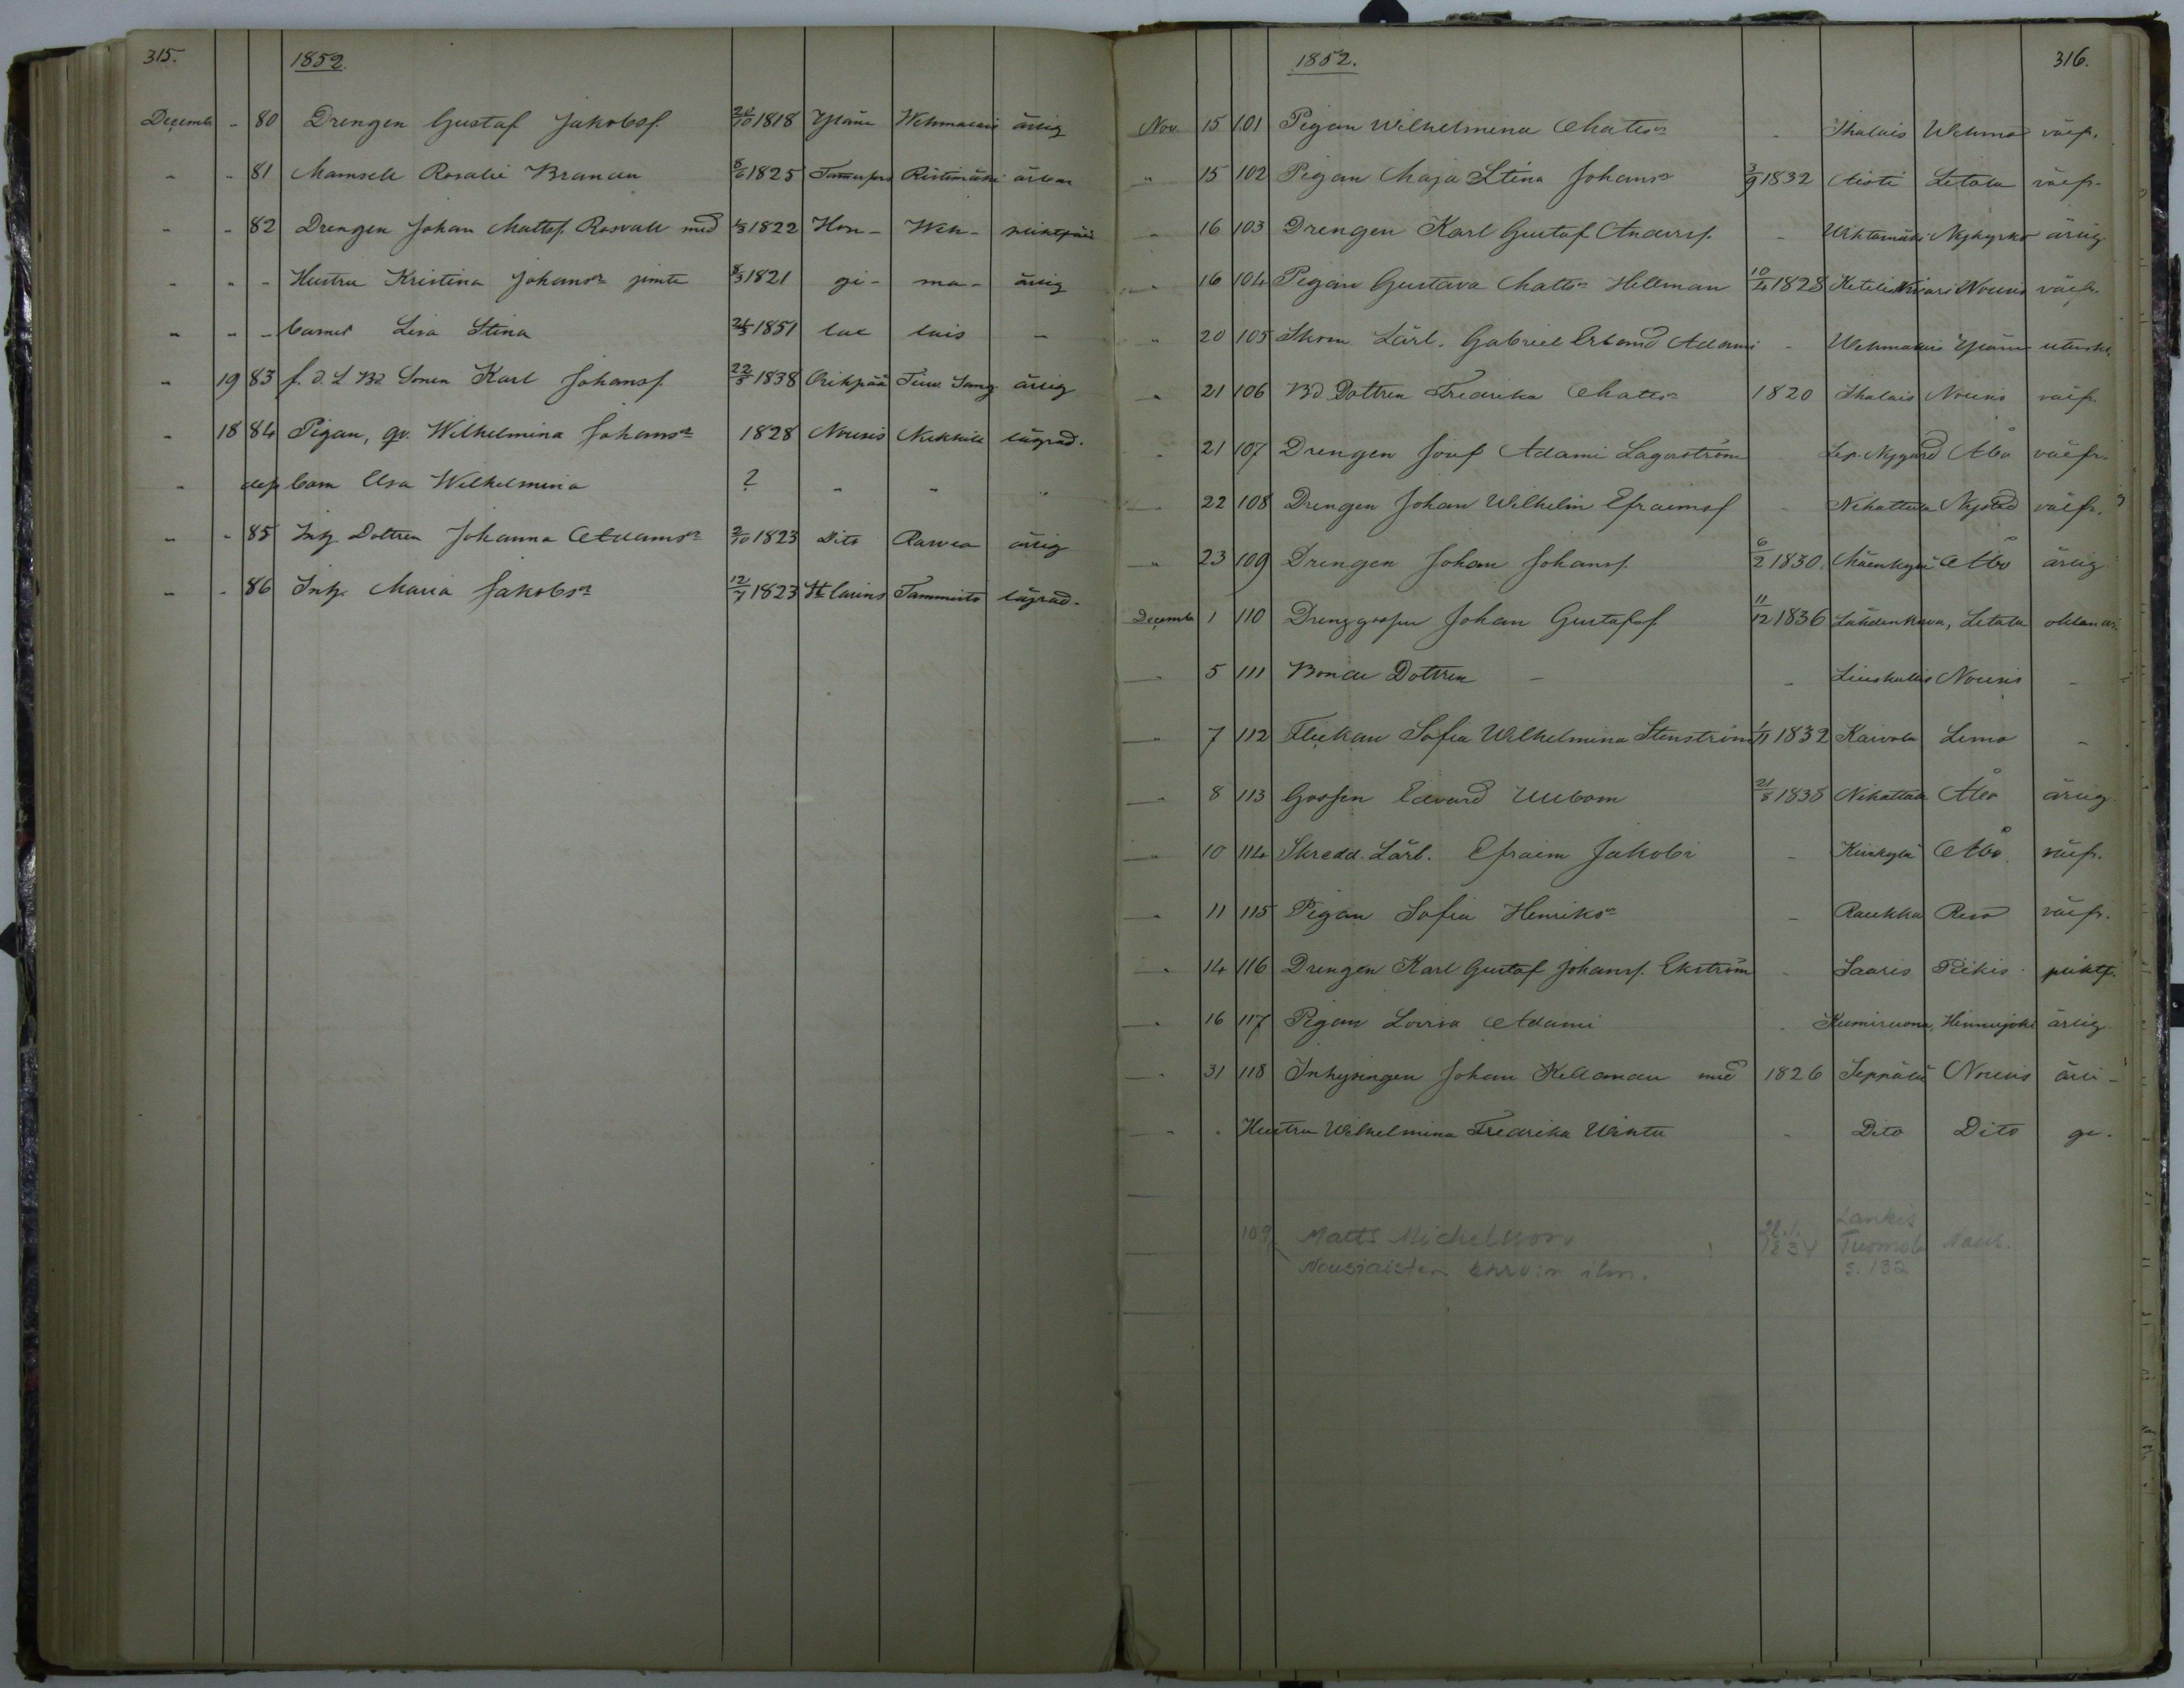 315.
1852.
Decemb. - 80 Drengen Gustaf Jakobsf. 24/10 1818 Yläne Wehmalais ärlig
- - 81 Mamsell Rosalie Brander 8/6 1825 Tammerfors Ristimäki
- - 82 Drengen Johan Mattsf. Rosvall med 1822 Hon- Weh-
- - - Hustru Kristina Johansdr jemte 1821 gi- ma- ärlig
- - - barnet Lisa Stina 1851 lais -
- 19 83 f. d. L Bd. Sonen Karl Johansf. 22/5 1838 Orihpää ärlig
- 18 84 Pigan, qv. Wilhelmina Johansdr 1828 Nousis lägrad.
- dess barn Elsa Wilhelmina ? - - "
- - 85 Inh. Dottren Johanna Adamsdr 2/10 1823 Dito ärlig
- - 86 Inh. Maria Jakobsdr 12/7 1823 St Carins Tammisto lägrad.
1852.
316.
Nov. 15 101 Pigan Wilhelmina Mattsdr - Thalais Wehmo väfr.
" 15 102 Pigan Maja Stina Johansdr 3/9 1832 Aisti Letala väfr.
" 16 103 Drengen Karl Gustaf Andersf. - Nykyrko ärlig
" 16 104 Pigan Gustava Mattsdr Hellman 10/4 1828 Nousis väfr.
" 20 105 Skom. Lärl. Gabriel Erland Adami - Wehmalais Yläne
" 21 106 Bd. Dottren Fredrika Mattsdr 1820 Thalais Nousis väfr.
" 21 107 Drengen Josef Adami Lagerström Lep. Nygård Åbo väfr.
" 22 108 Drengen Johan Wilhelm Efraimsf - Nihattula Nystad väfr.
" 23 109 Drengen Johan Johansf. 6/2 1830 Mäenkylä Åbo ärlig
Decemb. 1 110 Drenggossen Johan Gustafsf. 11/12 1836 Letala
" 5 111 Bonde Dottren - - Nousis -
" 7 112 Flickan Sofia Wilhelmina Stenström 1/11 1832 Kaivola Lemo -
" 8 113 Gossen Edvard Uubom 21/8 1838 Nihattula Åbo ärlig
" 10 114 Skredd. Lärl. Efraim Jakobi - Kiiskylä Åbo väfr.
" 11 115 Pigan Sofia Henriksdr - Raukka Reso väfr.
" 14 116 Drengen Karl Gustaf Johansf. Ekström - Saaris Piikis
" 16 117 Pigan Lovisa Adami - Hinnerjoki ärlig
" 31 118 Inhysingen Johan Kellander med 1826 Seppälä Nousis ärli-
" " Hustru Wilhelmina Fredrika Wiktor - Dito Dito ge.
109 Matts Michelsson 22.1. 1834 Lankis Tuomola Nous.
Nousiaisten ilm. s. 132